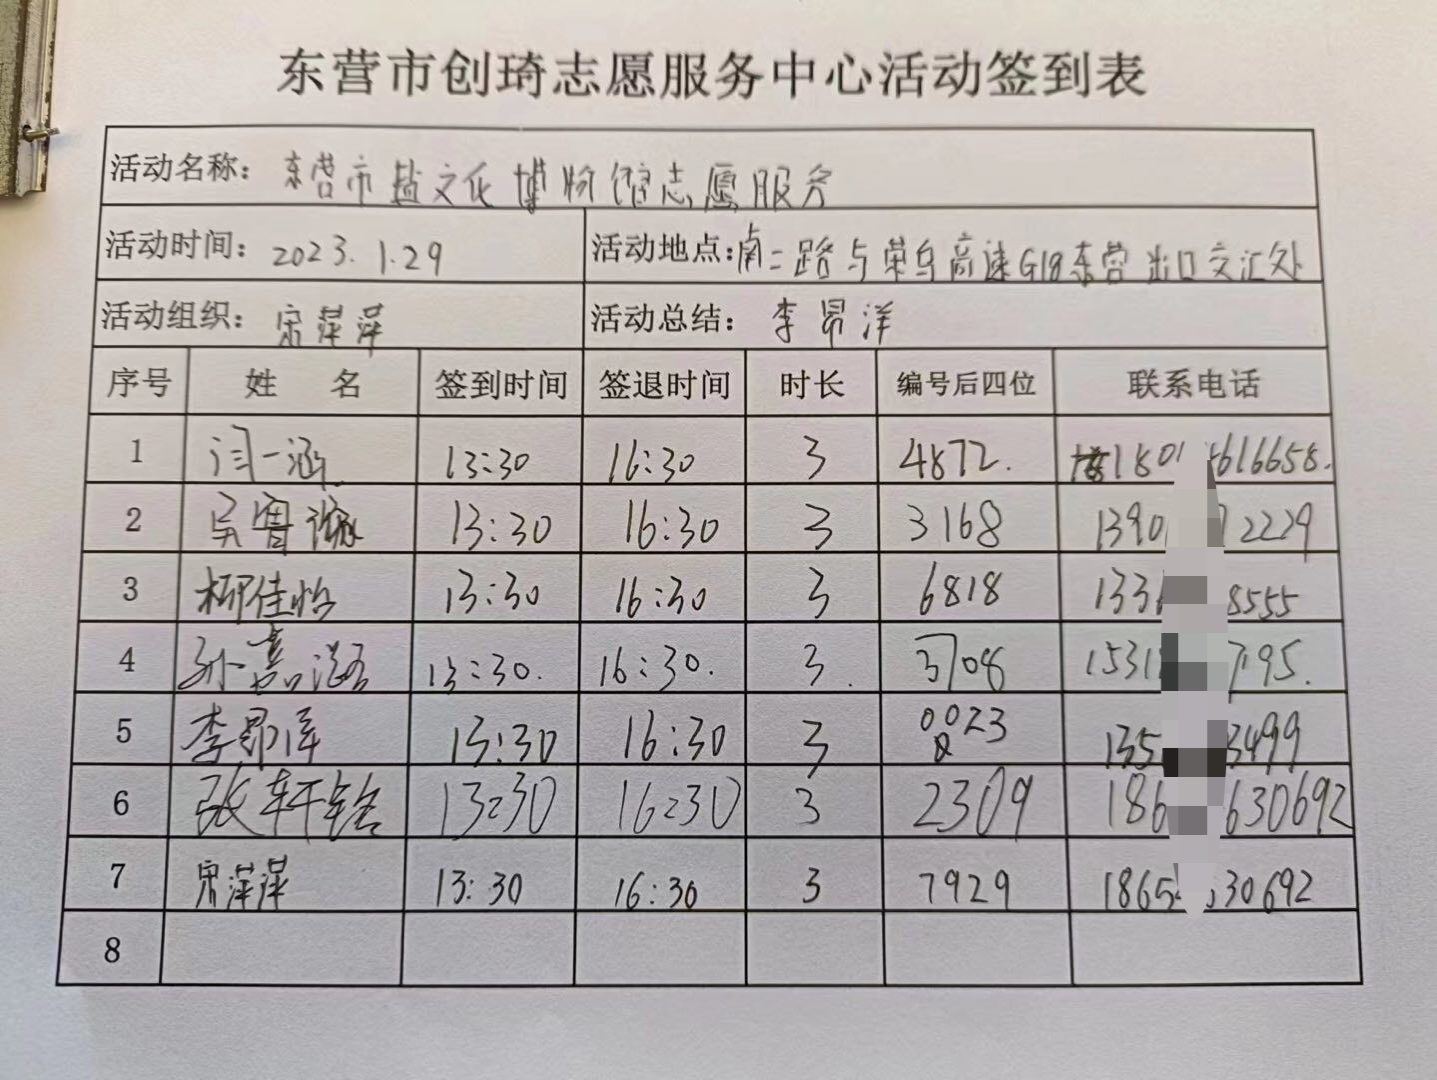 东营市创琦志愿服务中心活动签到表
活动名称: 东营市盐文化博物馆志愿服务
活动时间: 2023.1.29 活动地点: 南二路与荣乌高速G18东营出口交汇处
活动组织: 宋萍萍 活动总结: 李昂洋
序号 姓名 签到时间 签退时间 时长 编号后四位 联系电话
1 闫一涵 13:30 16:30 3 4872. 1801 616658.
2 13:30 16:30 3 3168 1390 2229
3 柳佳怡 13:30 16:30 3 6818 133 8555
4 孙嘉 13:30. 16:30. 3. 3708 1531 795.
5 李昂洋 13:30 16:30 3 0023 135 3499
6 张轩铭 13:30 16:30 3 2309 186 630692
7 宋萍萍 13:30 16:30 3 7929 1865 30692
8